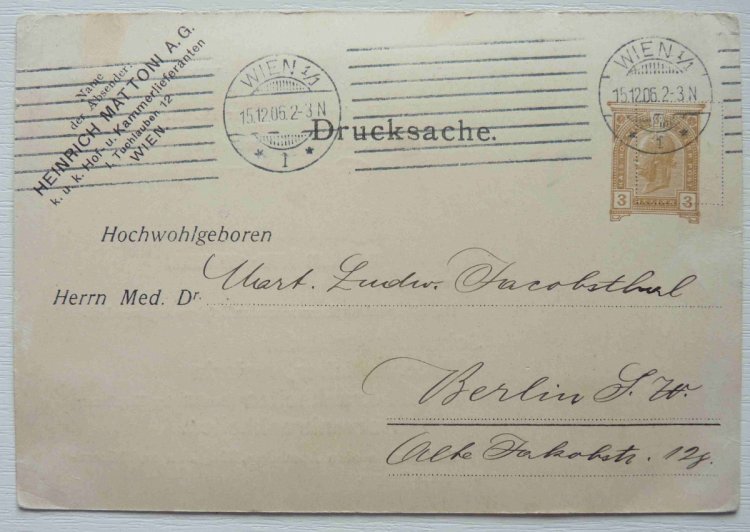 Name
der Absender:
HEINRICH MATTONI A.G.
k. u. k. Hof- u. Kammerlieferanten
I. Tuchlauben 12
WIEN.
WIEN 1/1
15.12.06.2-3N
* 1 *
WIEN 1/1
15.12.06.2-3N
* 1 *
Drucksache.
3 3
Hochwohlgeboren
Herrn Med. Dr. Mart. Ludw. Jacobsthal
Berlin S.W.
Alte Jakobstr.